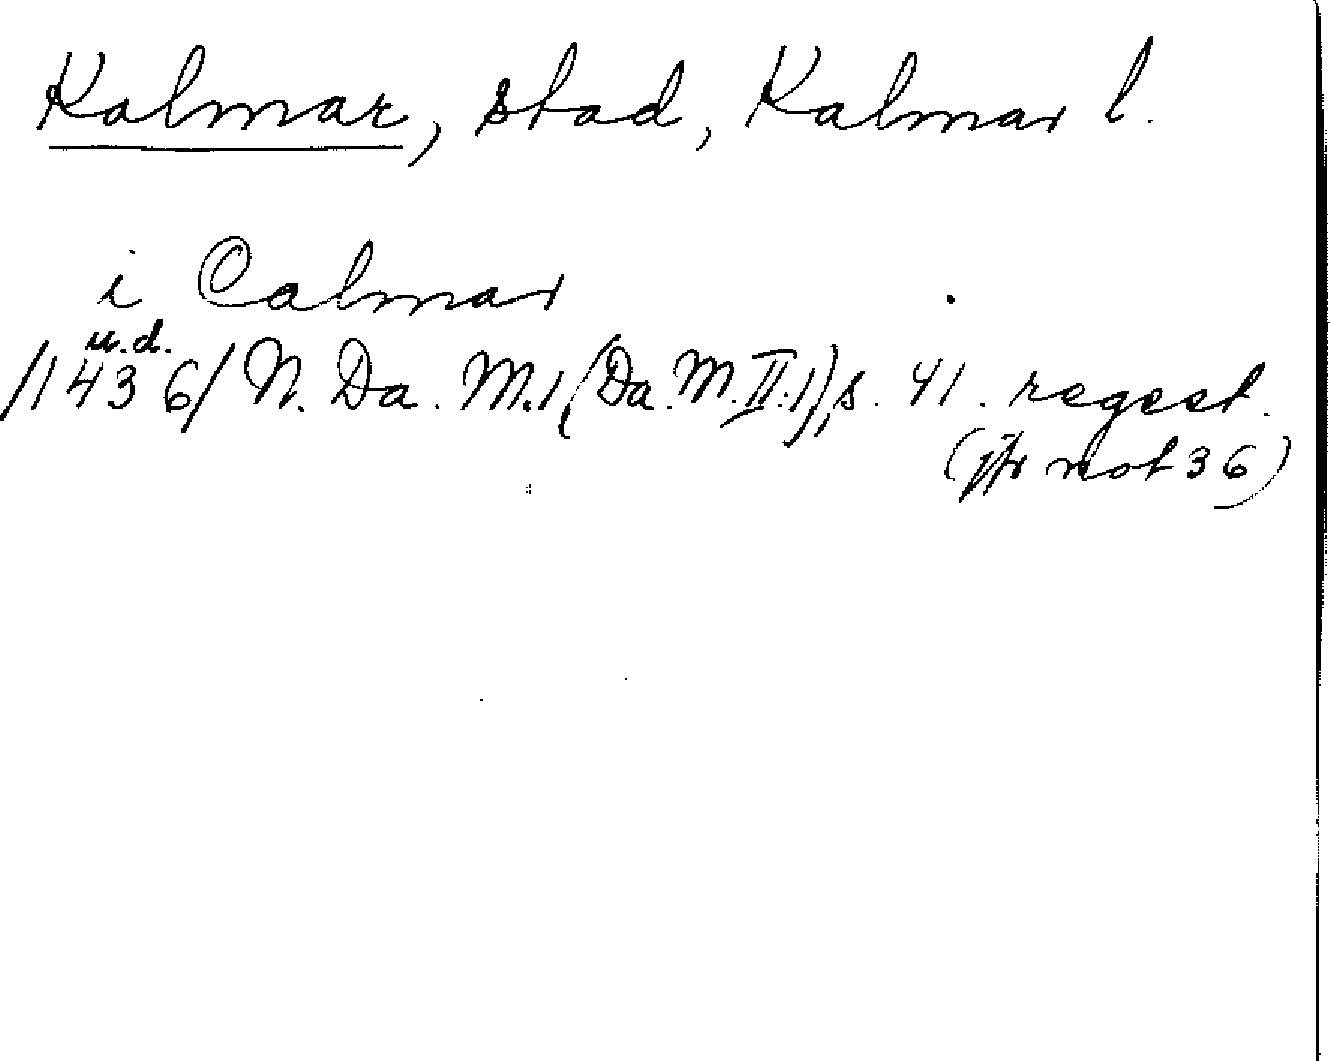 Kalmar, stad, Kalmar l.
i Calmar
u.d.
/1436/ N. Da. M.1, (Da. M. II.1), s. 41. regest.
(jfr not 36)